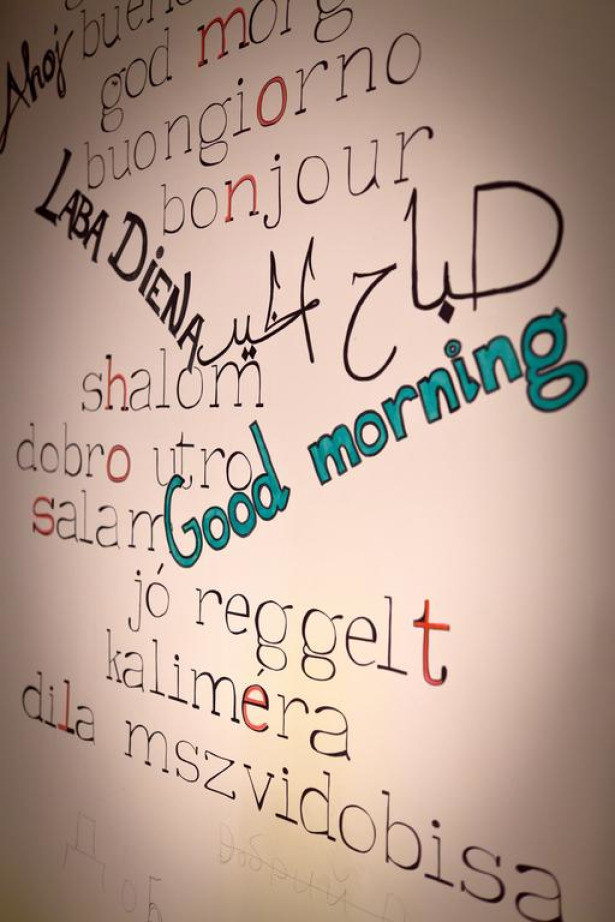 Ahoj
god morg
buongiorno
bonjour
LABA DiENA
صباح الخير
shalom
dobro utro
Good morning
salam
jó reggelt
kaliméra
dila mszvidobisa
Добрий